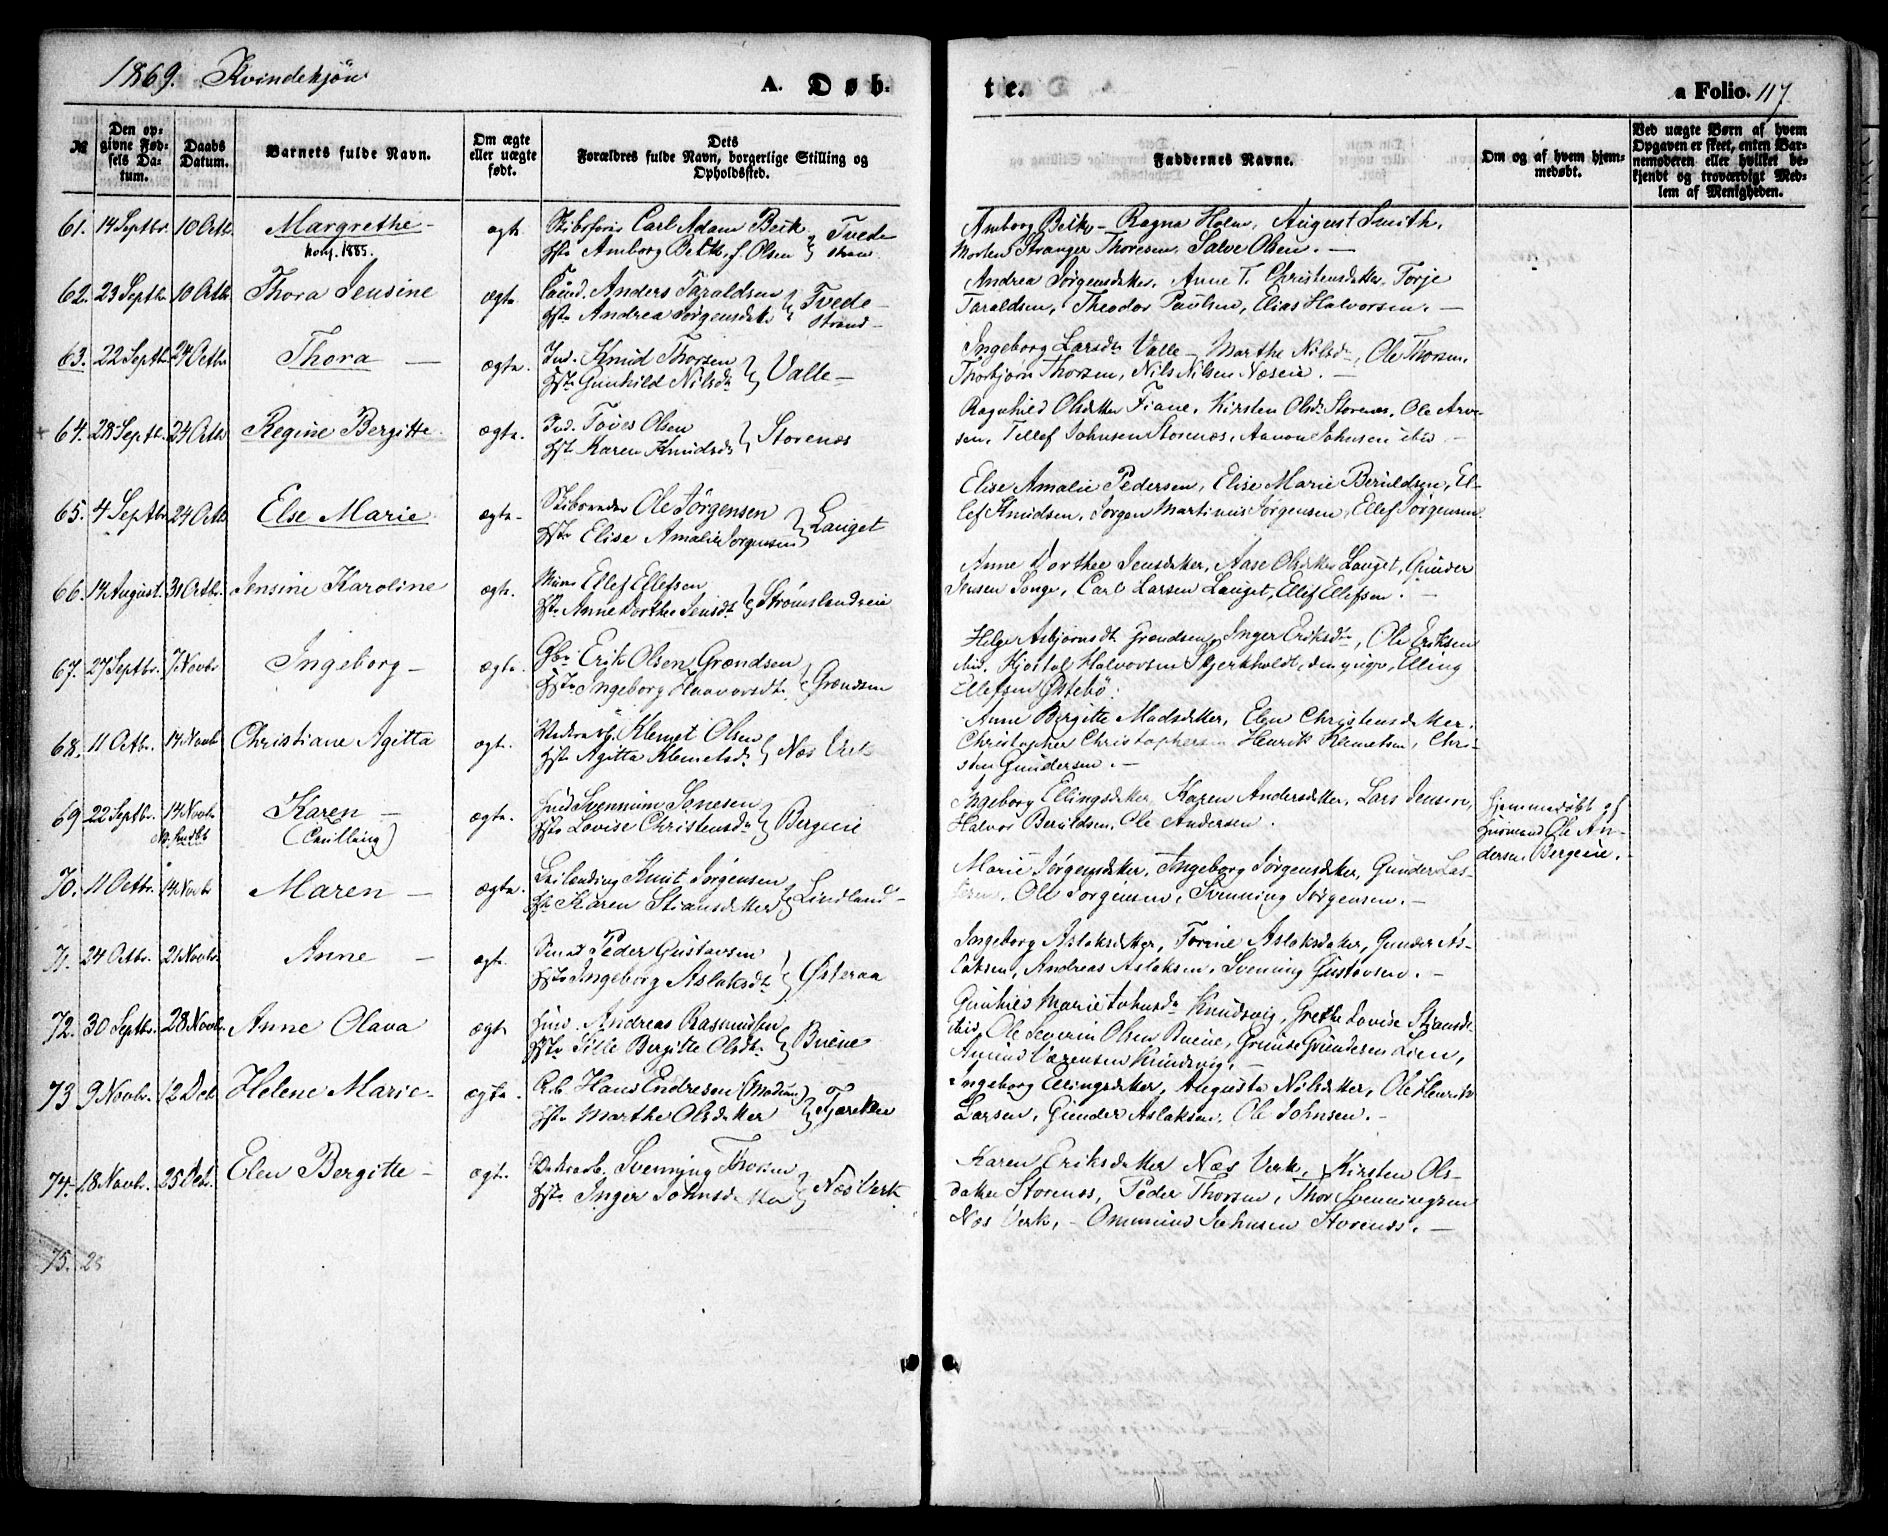 1869. Kvindekjøn
A. Døb-
te.
a Folio. 117
№
Den op-
givne Fød-
sels Da-
tum.
Daabs
Datum.
Barnets fulde Navn.
Om ægte
eller uægte
født.
Dets
Forældres fulde Navn, borgerlige Stilling og
Opholdssted.
Faddernes Navne.
Om og af hvem hjem-
medøbt.
Ved uægte Børn af hvem
Opgaven er skeet, enten Bar-
nemoderen eller hvilket be-
kjendt og troværdigt Med-
lem af Menigheden.
61. 14 Septbr. 10 Octb. Margrethe - ægte Skibsfører Carl Adam Beck Tvede
1885. Amborg Beck, f. Olsen strand
Amborg Beck - Ragna Holm, August Smith,
Morten Stranger Thoresen, Salve Olsen. -
62. 23 Septb. 10 Octb. Thora Jensine ægte Anders Taraldsen Tvede-
Andrea Jørgensdt. strand -
Andrea Jørgensdatter, Anne T. Christensdatter, Torje
Taraldsen, Theodor Paulsen, Elias Halvorsen. -
63. 22 Septb. 24 Octbr. Thora - ægte. Ind. Knud Thorsen
Gunhild Nilsdt Valle -
Ingeborg Larsdt Valle - Marthe Nilsdt, Ole Thorsen,
Thorbjørn Thorsen, Nils Nilsen Næseie. -
64. 28 Septb. 24 Octb. Regine Bergitte. ægte. Ind. Toves Olsen
Karen Knudsdt Storenæs
Ragnhild Olsdatter Fiane, Kirsten Olsdt Storenæs, Ole Arve-
sen, Tellef Johnsen Storenæs, Aanon Johnsen ibid -
65. 4 Septbr. 24 Octb. Else Marie ægte - Ole Jørgensen
Elise Amalie Jørgensen Lauget
Elise Amalie Pedersen, Elise Marie Beruldsen, El-
lef Knudsen, Jørgen Martinus Jørgensen, Ellef Jørgensen.
66. 14 August. 31 Octbr. Jensine Karoline ægte. Ellef Ellefsen
Anne Dorthe Jensdt. Strømslandseie
Anne Dorthea Jensdatter, Aase Olsdatter Lauget, Gunder
Jensen Songe, Carl Larsen Lauget, Ellef Ellefsen. -
67. 27 Septbr. 7 Novbr Ingeborg - ægte. Gbr. Erik Olsen Grændsen
Ingeborg Haavorsdt. Grændsen
Helge Asbjørnsdt Grændsen, Inger Eriksdtr, Ole Eriksen
ibid. Kjøstol Halvorsen Skjerkholdt, den yngre, Elling
Ellefsen Østebø.
68. 11 Octbr. 14 Novbr Christiane Agitta ægt. Klemet Olsen
Agitta Klemetsdt Næs Verk
Anne Bergitte Madsdatter, Elen Christensdatter,
Christopher Christophersen Henrik Klemetsen, Chri-
sten Gundersen. -
69 22 Septbr. 14 Novbr Karen - ægte. Svennum Jensen
(Tvilling) Lovise Christensdt Bergeeie
Ingeborg Ellingsdatter, Karen Andersdatter, Lars Jensen,
Halvor Beruldsen, Ole Andersen.
Hjemmedøbt af
Husmand Ole An-
dersen Bergeeie.
70. 11 Octbr. 14 Novbr Maren - ægte. Leilænding Knut Jørgensen
Karen Stiansdatter Lindland -
Marie Jørgensdatter, Ingeborg Jørgensdatter, Gunder Las-
Ole Jørgensen, Svenning Jørgensen. -
71. 24 Octbr. 21 Novbr. Anne - ægte. Peder Gustavsen
Ingeborg Aslaksdt Østeraa
Ingeborg Aslaksdatter, Torine Aslaksdatter, Gunder As-
laksen, Andreas Aslaksen, Svening Gustavsen. -
72. 30 Septbr. 28 Novbr. Anne Olava ægt. Andreas Rasmussen
Sille Bergitte Olsdt. Bueeie
Gunhild Marie Johnsdt Knudsvig, Grethe Lovise Stiansdt
ibid, Ole Severin Olsen Bueeie, Gunder Lien,
Knudsvig. -
73 9 Novbr. 12 Dec Helene Marie - ægte. Hans Endresen (Modum)
Marthe Olsdatter
Ingeborg Ellingsdatter, Augusta Nilsdatter, Ole Henrik
Larsen, Gunder Aslaksen, Ole Johnsen. -
74. 18 Novbr. 25 Dec. Elen Bergitte - ægte. Svenning Thorsen
Inger Johnsdatter Næs Verk
Karen Eriksdatter Næs Verk, Kirsten Ols-
datter Storenæs, Peder Thorsen, Thor Svenningsen
Næs Verk, - Ommund Johnsen Storenæs. -
75. 28